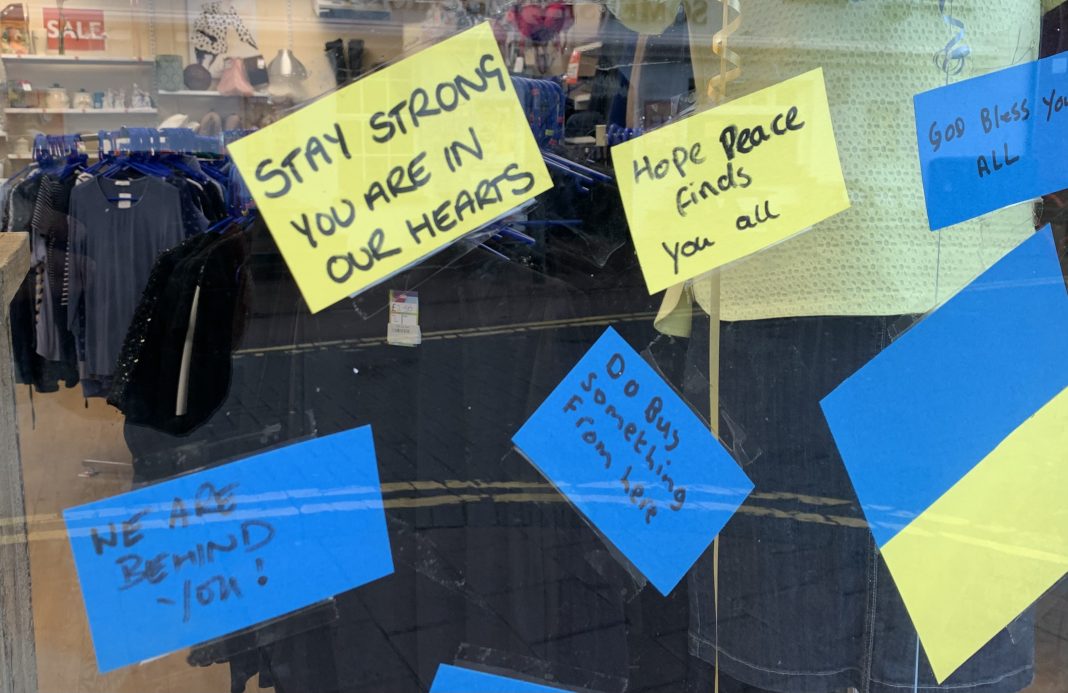 SALE
STAY STRONG
YOU ARE IN
OUR HEARTS
Hope Peace
finds
you all
GOD Bless You
ALL
Do Buy
something
From here
WE ARE
BEHIND
YOU!